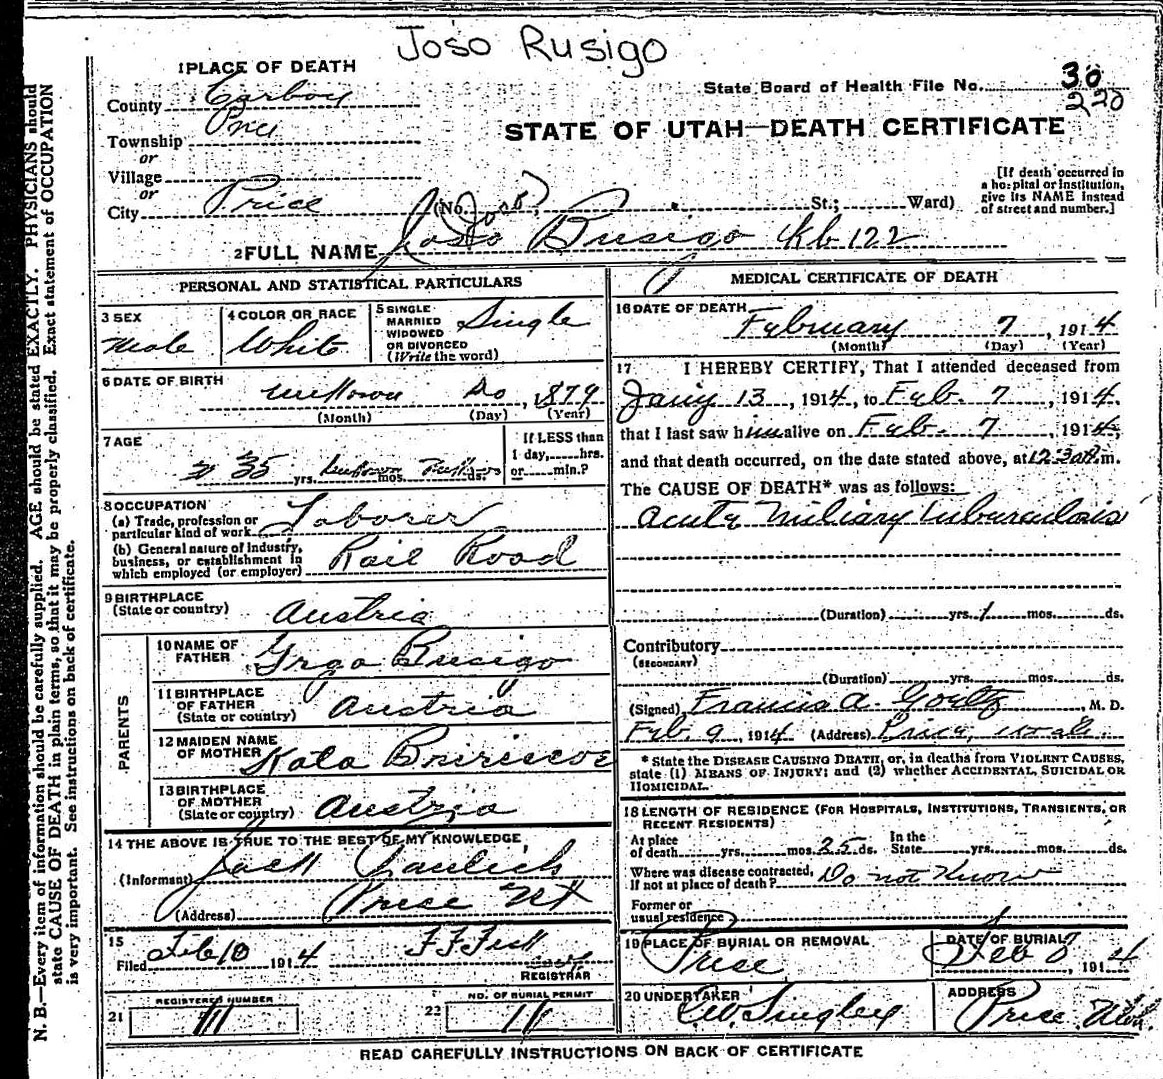 Joso Rusigo
1 PLACE OF DEATH
County Carbon
State Board of Health File No. 30
220
Township Price
or
STATE OF UTAH—DEATH CERTIFICATE
Village
or
City Price (No. St.; Ward)
[If death occurred in a hospital or institution, give its NAME instead of street and number.]
(Joso)
2 FULL NAME Joso Rusigo Kb 122
PERSONAL AND STATISTICAL PARTICULARS
3 SEX Male
4 COLOR OR RACE White
5 SINGLE MARRIED WIDOWED OR DIVORCED (Write the word) Single
6 DATE OF BIRTH unknown Do, 1879
(Month) (Day) (Year)
7 AGE 35 yrs. unknown mos. ds.
If LESS than 1 day, hrs. or min.?
8 OCCUPATION
(a) Trade, profession or particular kind of work Laborer
(b) General nature of industry, business, or establishment in which employed (or employer) Rail Road
9 BIRTHPLACE (State or country) Austria
PARENTS
10 NAME OF FATHER Grga Rusigo
11 BIRTHPLACE OF FATHER (State or country) Austria
12 MAIDEN NAME OF MOTHER Kata
13 BIRTHPLACE OF MOTHER (State or country) Austria
14 THE ABOVE IS TRUE TO THE BEST OF MY KNOWLEDGE
(Informant) Jack
(Address) Price Ut
15
Filed Feb 10 1914 F F Fisk
REGISTRAR
REGISTERED NUMBER
21 11
NO. OF BURIAL PERMIT
22 11
MEDICAL CERTIFICATE OF DEATH
16 DATE OF DEATH February 7, 1914
(Month) (Day) (Year)
17 I HEREBY CERTIFY, That I attended deceased from
Jany 13, 1914, to Feb. 7, 1914.
that I last saw him alive on Feb. 7, 1914,
and that death occurred, on the date stated above, at 12 30 A m.
The CAUSE OF DEATH* was as follows:
Acute Miliary Tuberculosis
(Duration) yrs. 1 mos. ds.
Contributory
(SECONDARY)
(Duration) yrs. mos. ds.
(Signed) Francis A. Goeltz, M. D.
Feb. 9, 1914 (Address) Price, Utah.
* State the DISEASE CAUSING DEATH, or, in deaths from VIOLENT CAUSES,
state (1) MEANS OF INJURY; and (2) whether ACCIDENTAL, SUICIDAL OR
HOMICIDAL.
18 LENGTH OF RESIDENCE (FOR HOSPITALS, INSTITUTIONS, TRANSIENTS, OR
RECENT RESIDENTS)
At place of death yrs. mos. 25 ds. In the State yrs. mos. ds.
Where was disease contracted, if not at place of death? Do not Know
Former or usual residence
19 PLACE OF BURIAL OR REMOVAL Price
DATE OF BURIAL Feb 8, 1914
20 UNDERTAKER
ADDRESS Price Utah.
READ CAREFULLY INSTRUCTIONS ON BACK OF CERTIFICATE
N. B.—Every item of information should be carefully supplied. AGE should be stated EXACTLY. PHYSICIANS should
state CAUSE OF DEATH in plain terms, so that it may be properly classified. Exact statement of OCCUPATION
is very important. See instructions on back of certificate.